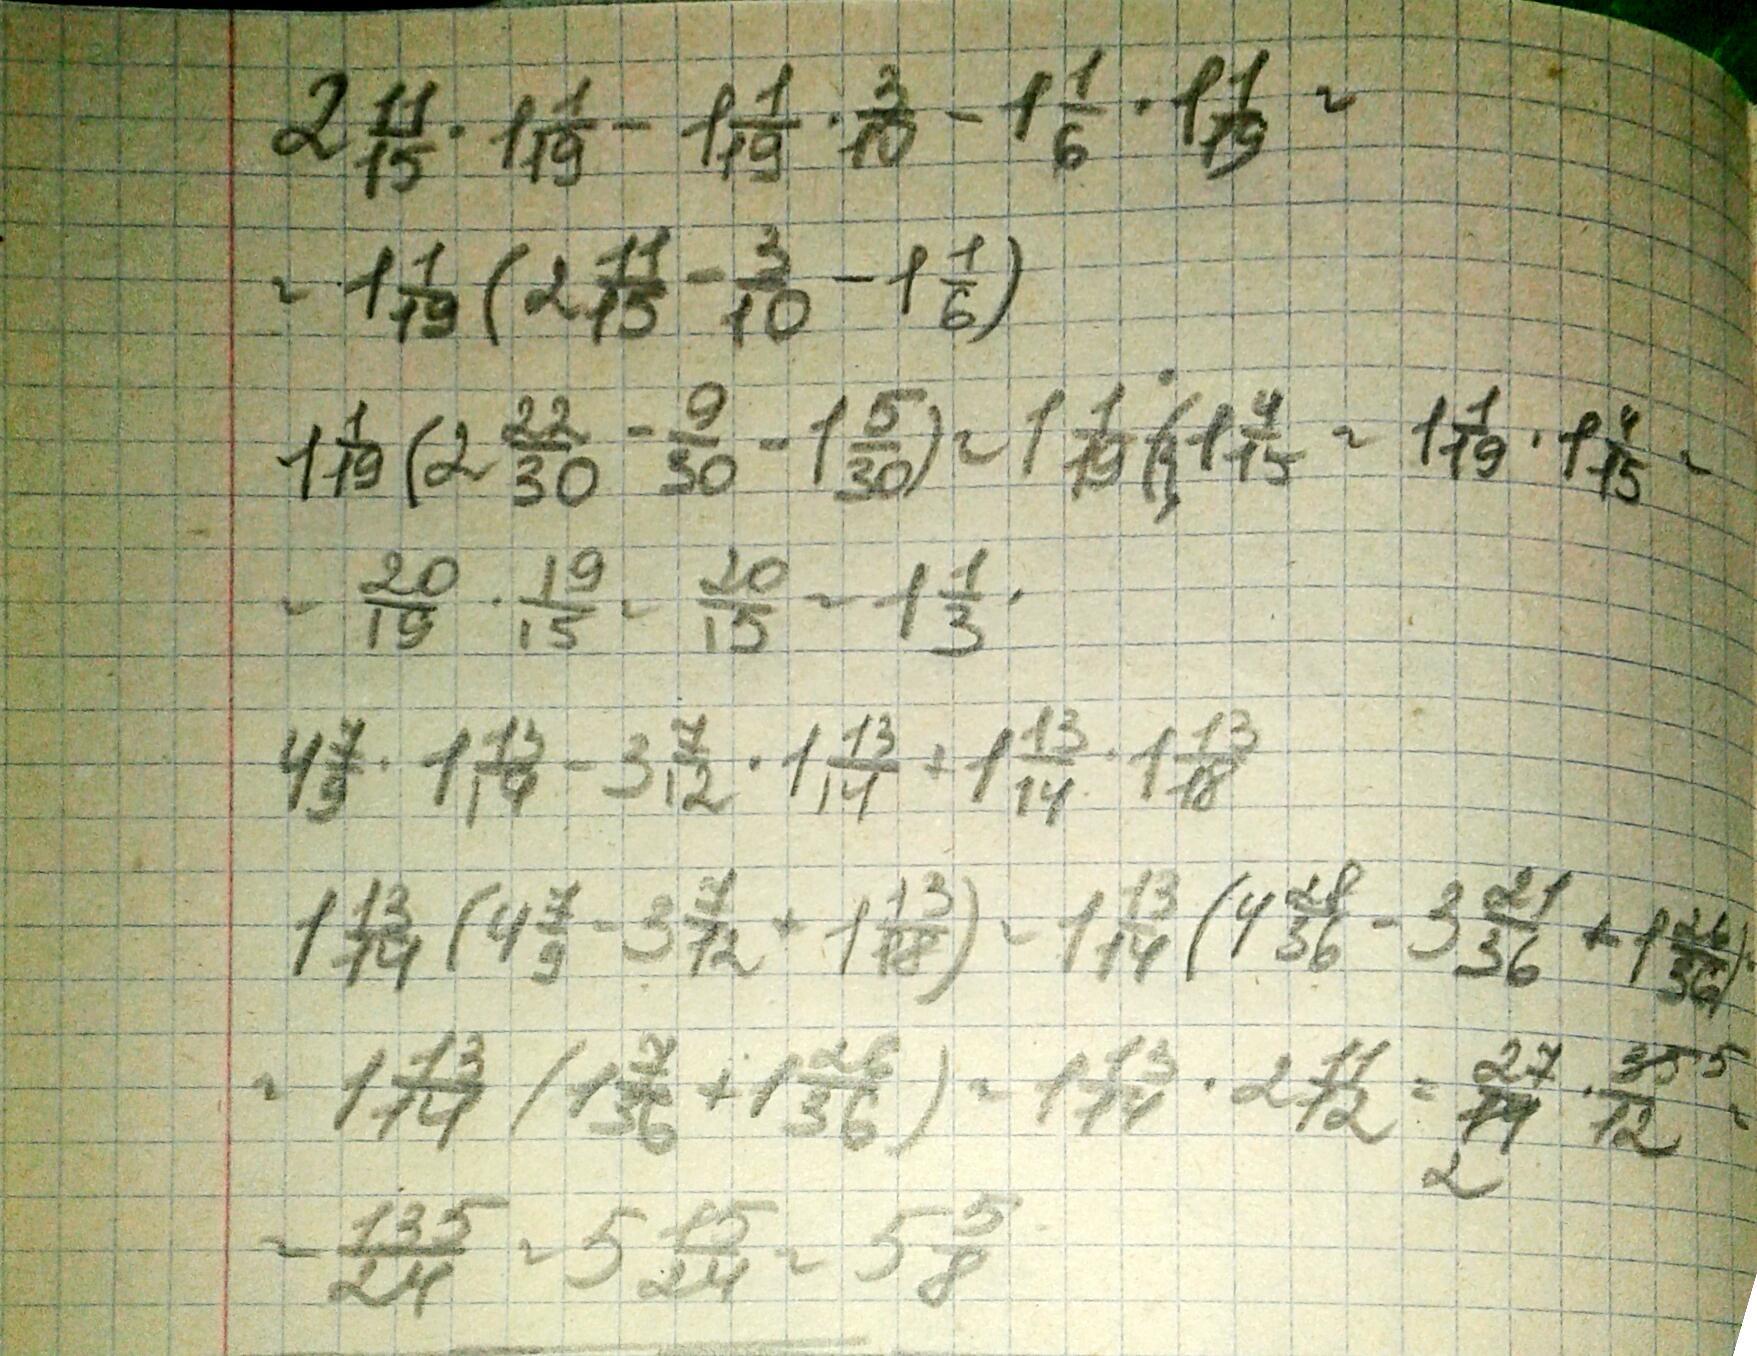 2 11/15 · 1 1/19 - 1 1/19 · 3/10 - 1 1/6 · 1 1/19 =
= 1 1/19 (2 11/15 - 3/10 - 1 1/6)
1 1/19 (2 22/30 - 9/30 - 1 5/30) = 1 1/19 ( 1 4/15 = 1 1/19 · 1 4/15 =
= 20/19 · 19/15 = 20/15 = 1 1/3 .
4 7/9 · 1 13/14 - 3 7/12 · 1 13/14 + 1 13/14 · 1 13/18
1 13/14 (4 7/9 - 3 7/12 + 1 13/18) = 1 13/14 (4 28/36 - 3 21/36 + 1 26/36) =
= 1 13/14 (1 7/36 + 1 26/36) = 1 13/14 · 2 11/12 = 27/14 · 35/12 5 =
2
= 135/24 = 5 15/24 = 5 5/8